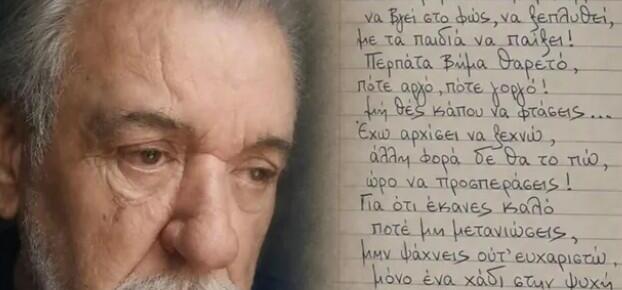 να βγεί στο φώς, να ξεπλυθεί,
με τα παιδιά να παίξει!
Περπάτα βήμα θαρετό,
πότε αργό, πότε γοργό!
μή θές κάπου να φτάσεις...
Έχω αρχίσει να ξεχνώ,
άλλη φορά δε θα το πιώ,
ώρα να προσπεράσεις!
Για ότι έκανες καλό
ποτέ μη μετανιώσεις,
μην ψάχνεις ούτ' ευχαριστώ,
μόνο ένα χάδι στην ψυχή